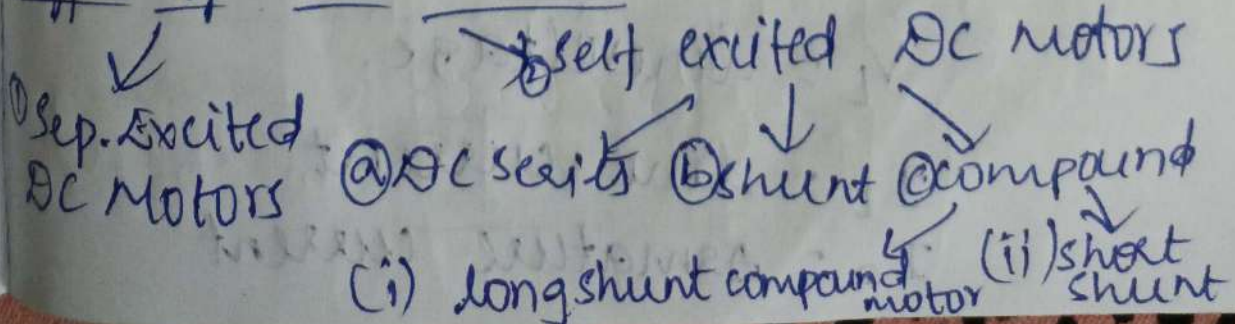 ② self excited DC Motors
① Sep. Excited
DC Motors
ⓐ DC series ⓑ shunt ⓒ compound
(i) long shunt compound motor
(ii) short shunt